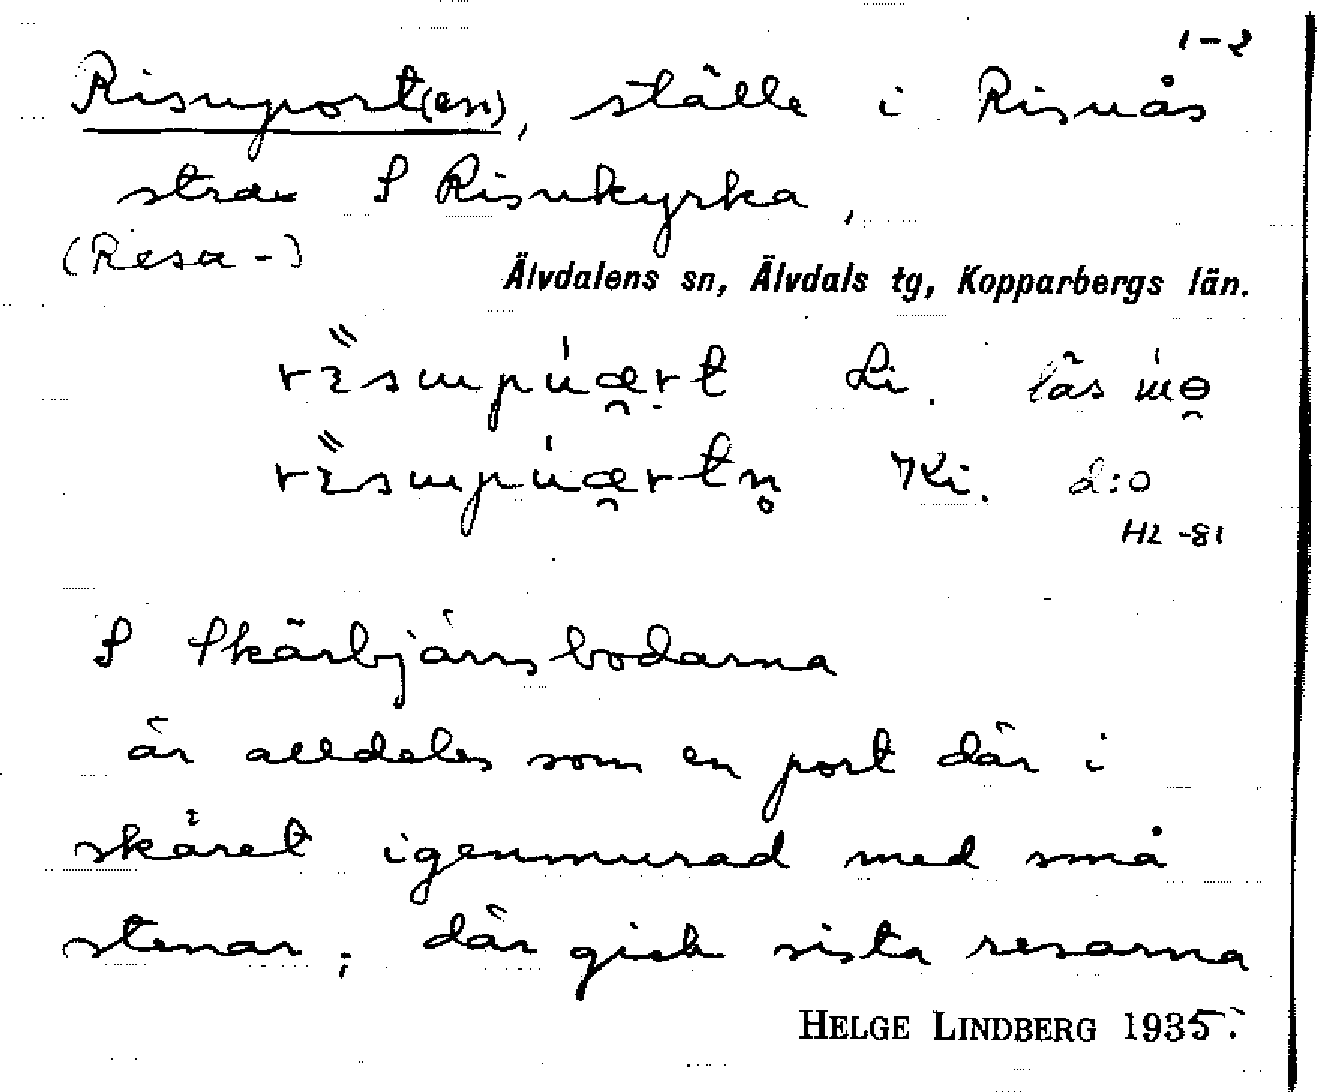 1-2
Risuport(en), ställe i Risnås
strax S Risukyrka,
(Resa-)
Älvdalens sn, Älvdals tg, Kopparbergs län.
Li. läs
Ki. d:o
HL -81
S Skärbjärnsbodarna
är alldeles som en port där i
skäret igenmurad med små
stenar; där gick sista resarna
HELGE LINDBERG 1935.